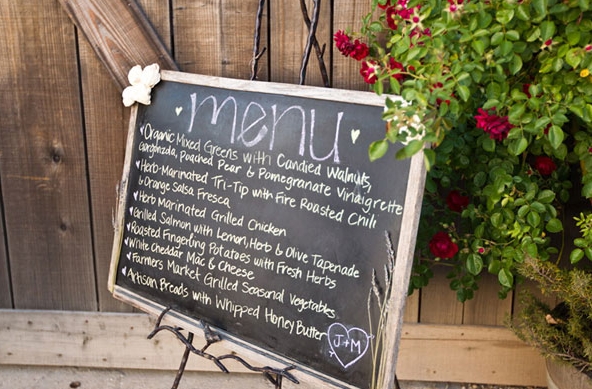 menu
Organic Mixed Greens with Candied Walnuts,
Gorgonzola, Poached Pear & Pomegranate Vinaigrette
Herb-Marinated Tri-Tip with Fire Roasted Chili
& Orange Salsa Fresca
Herb Marinated Grilled Chicken
Grilled Salmon with Lemon, Herb & Olive Tapenade
Roasted Fingerling Potatoes with Fresh Herbs
White Cheddar Mac & Cheese
Farmers Market Grilled Seasonal Vegetables
Artisan Breads with Whipped Honey Butter
J+M